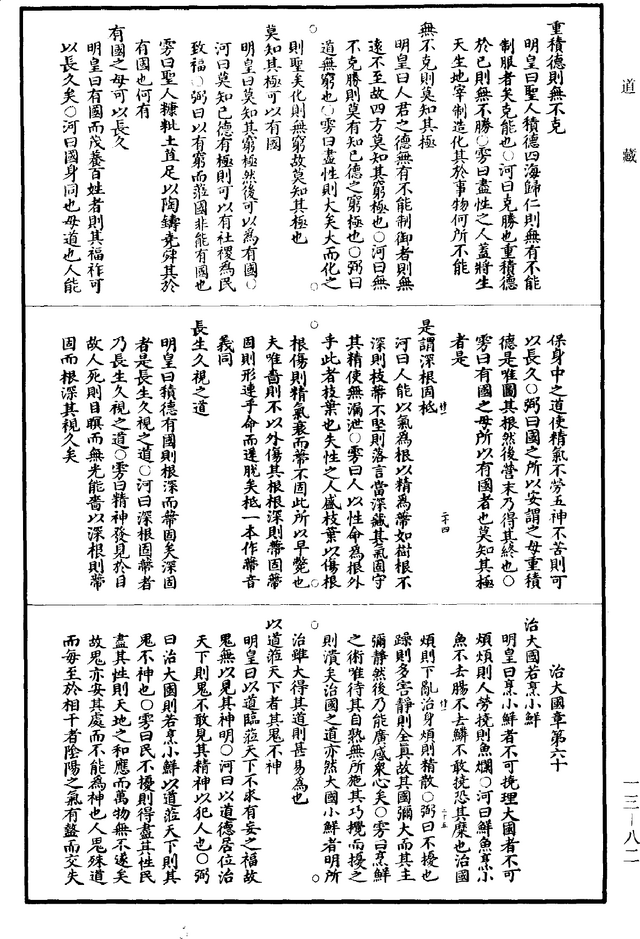 道藏
重積德則無不克
明皇曰聖人積德四海歸仁則無有不能
制服者矣克能也○河曰克勝也重積德
於已則無不勝○雱曰盡性之人蓋將生
天生地宰制造化其於事物何所不能
無不克則莫知其極
明皇曰人君之德無有不能制御者則無
遠不至故四方莫知其窮極也○河曰無
不克勝則莫有知已德之窮極也○弼曰
道無窮也○雱曰盡性則大矣大而化之
則聖矣化則無窮故莫知其極也
莫知其極可以有國
明皇曰莫知其窮極然後可以為有國○
河曰莫知已德有極則可以有社稷為民
致福○弼曰以有窮而莅國非能有國也
雱曰聖人糠粃土苴足以陶鑄堯舜其於
有國也何有
有國之母可以長久
明皇曰有國而茂養百姓者則其福祚可
以長久矣○河曰國身同也母道也人能
保身中之道使精氣不勞五神不苦則可
以長久○弼曰國之所以安謂之母重積
德是唯圖其根然後營末乃得其終也○
雱曰有國之母所以有國者也莫知其極
者是
是謂深根固柢
河曰人能以氣為根以精為蔕如樹根不
深則枝蔕不堅則落言當深藏其氣固守
其精使無漏泄○雱曰人以性命為根外
乎此者枝葉也失性之人盛枝葉以傷根
根傷則精氣衰而蔕不固此所以早斃也
夫唯嗇則不以外傷其根根深則蔕固蔕
固則形連乎命而遲脫矣柢一本作蔕音
義同
長生久視之道
明皇曰積德有國則根深而蔕固矣深固
者是長生久視之道○河曰深根固蔕者
乃長生久視之道○雱曰精神發見於目
故人死則目瞑而無光能嗇以深根則蔕
固而根深其視久矣
治大國章第六十
治大國若烹小鮮
明皇曰烹小鮮者不可撓理大國者不可
煩煩則人勞撓則魚爛○河曰鮮魚烹小
魚不去腸不去鱗不敢撓恐其糜也治國
煩則下亂治身煩則精散○弼曰不擾也
躁則多害靜則全真故其國彌大而其主
彌靜然後乃能廣感衆心矣○雱曰烹鮮
之術唯待其自熟無所施其巧攪而擾之
則潰矣治國之道亦然大國小鮮者明所
治雖大得其道則甚易為也
以道莅天下者其鬼不神
明皇曰以道臨莅天下不求有妄之福故
鬼無以見其神明○河曰以道德居位治
天下則鬼不敢見其精神以犯人也○弼
曰治大國則若烹小鮮以道莅天下則其
鬼不神也○雱曰民不擾則得盡其性民
盡其性則天地之和應而萬物無不遂矣
故鬼亦安其處而不能為神也人鬼殊道
而每至於相干者陰陽之氣有盩而交失
一三—八二